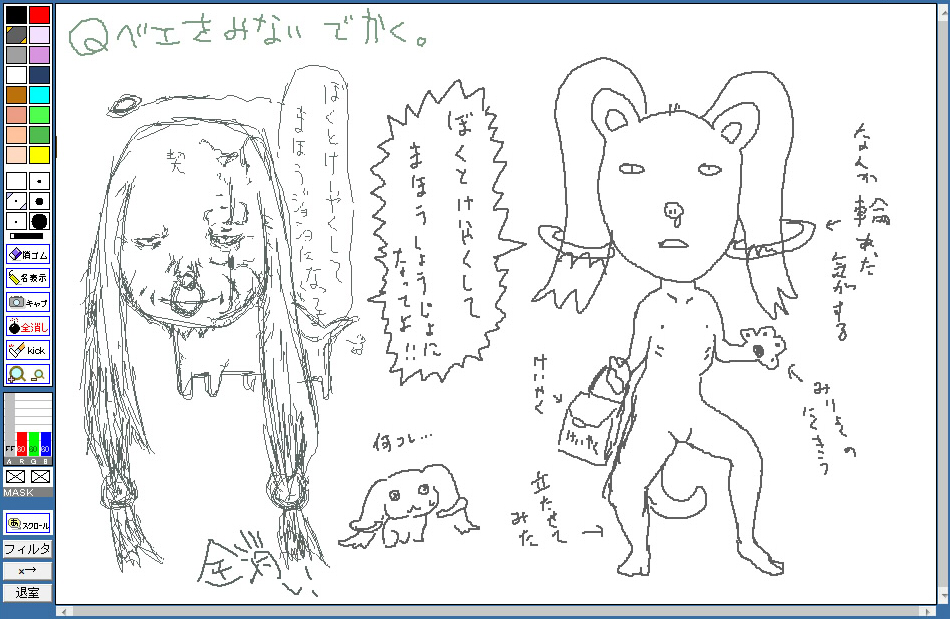 Qべエをみないでかく。
ぼくとけーやくして
まほうジョジョになって
契
ぼくとけいやくして
まほうしょうじょに
なってよ!!
なんか輪あった
気がする
けいやく
けいやく
みりょくの
にくきゅう
立たせて
みた
何コレ…
消ゴム
名表示
キャプ
全消し
kick
FF 80 80 80
A R G B
MASK
スクロール
フィルタ
×→
退室